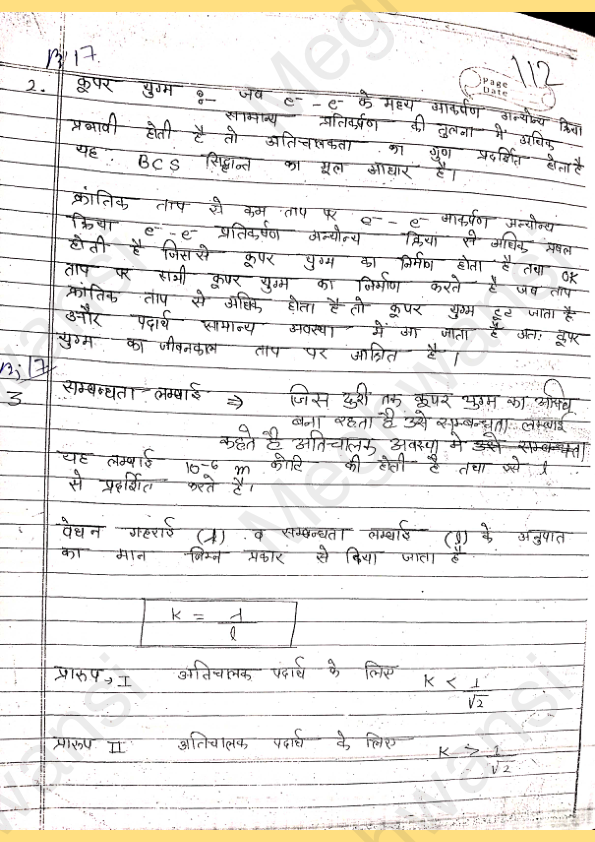 112
Page
Date
Bj 17
2. कूपर युग्म :- जब e⁻ - e⁻ के मध्य आकर्षण अन्योन्य क्रिया
सामान्य प्रतिकर्षण की तुलना में अधिक
प्रभावी होती है तो अतिचालकता का गुण प्रदर्शित होता है
यह BCS सिद्धान्त का मूल आधार है।
क्रांतिक ताप से कम ताप पर e⁻ - e⁻ आकर्षण अन्योन्य
क्रिया e⁻ - e⁻ प्रतिकर्षण अन्योन्य क्रिया से अधिक प्रबल
होती है जिससे कूपर युग्म का निर्माण होता है तथा 0K
ताप पर सभी कूपर युग्म का निर्माण करते है जब ताप
क्रांतिक ताप से अधिक होता है तो कूपर युग्म टूट जाता है
और पदार्थ सामान्य अवस्था में आ जाता है अतः कूपर
युग्म का जीवनकाल ताप पर आश्रित है।
Bj 17
3 सम्बन्धता लम्बाई ⇒ जिस दुरी तक कूपर युग्म का
बना रहता है उसे सम्बन्धता लम्बाई
कहते है अतिचालक अवस्था में उसे सम्बन्धता
यह लम्बाई 10⁻⁶ m कोटि की होती है तथा इसे l
से प्रदर्शित करते है।
वेधन गहराई (λ) व सम्बन्धता लम्बाई (l) के अनुपात
का मान निम्न प्रकार से किया जाता है
K = λ/l
प्रारूप → I अतिचालक पदार्थ के लिए K < 1/√2
प्रारूप II अतिचालक पदार्थ के लिए K > 1/√2
Meghwansi